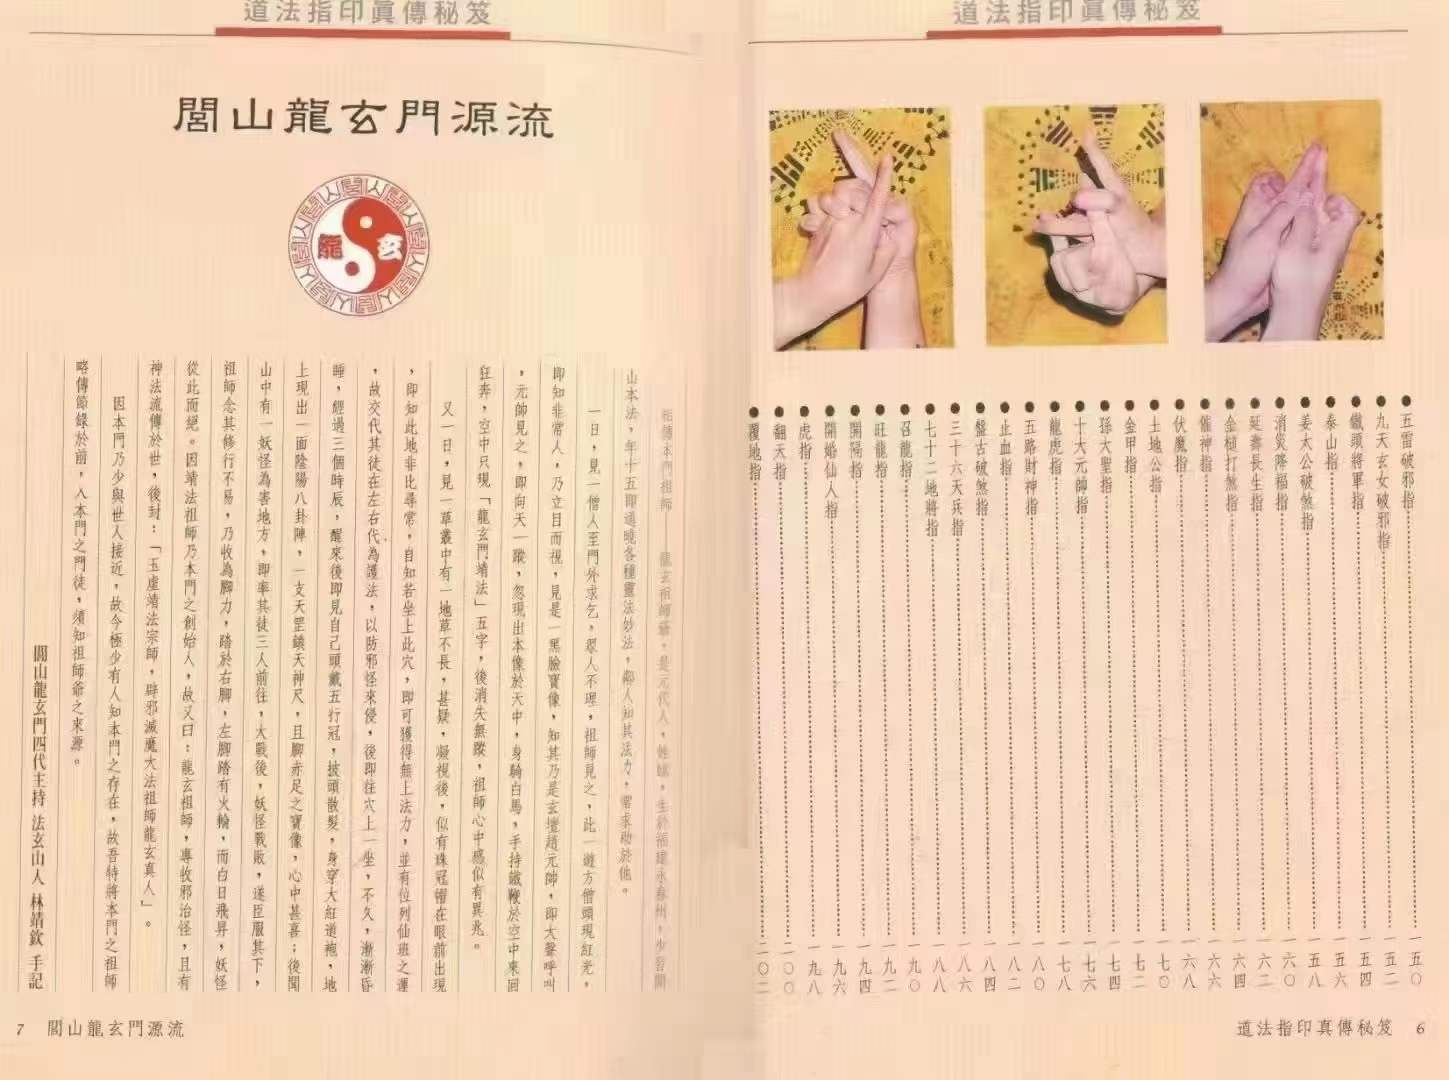 道法指印眞傳秘笈
五雷破邪指 一五〇
九天玄女破邪指 一五二
鐵頭將軍指 一五四
泰山指 一五六
姜太公破煞指 一五八
消災降福指 一六〇
延壽長生指 一六二
金槌打煞指 一六四
催神指 一六六
伏魔指 一六八
土地公指 一七〇
金甲指 一七二
孫大聖指 一七四
十大元帥指 一七六
龍虎指 一七八
五路財神指 一八〇
止血指 一八二
盤古破煞指 一八四
三十六天兵指 一八六
七十二地將指 一八八
召龍指 一九〇
旺龍指 一九二
開隔指 一九四
開婚仙人指 一九六
虎指 一九八
翻天指 二〇〇
覆地指 二〇二
道法指印真傳秘笈 6
道法指印眞傳秘笈
閭山龍玄門源流
龍 玄
相傳本門祖師 龍玄祖師爺,是元代人,姓,生於福建永春州,少習閭
山本法,年十五即通曉各種靈法妙法,鄰人知其法力,常求助於他。
一日,見一僧人至門外求乞,眾人不理,祖師見之,此一遊方僧頭現紅光,
即知非常人,乃立目而視,見是一黑臉寶像,知其乃是玄壇趙元帥,即大聲呼叫
,元帥見之,即向天一蹤,忽現出本像於天中,身騎白馬,手持鐵鞭於空中來回
狂奔,空中只現「龍玄門靖法」五字,後消失無蹤,祖師心中感似有異兆。
又一日,見一草叢中有一地草不長,甚疑,凝視後,似有珠冠帽在眼前出現
,即知此地非比尋常,自知若坐上此穴,即可獲得無上法力,並有位列仙班之運
,故交代其徒在左右代為護法,以防邪怪來侵,後即往穴上一坐,不久,漸漸昏
睡,經過三個時辰,醒來後即見自己頭戴五行冠,披頭散髮,身穿大紅道袍,地
上現出一面陰陽八卦陣,一支天罡鎮天神尺,且腳赤足之寶像,心中甚喜;後聞
山中有一妖怪為害地方,即率其徒三人前往,大戰後,妖怪戰敗,遂臣服其下,
祖師念其修行不易,乃收為腳力,踏於右腳,左腳踏有火輪,而白日飛昇,妖怪
從此而絕。因靖法祖師乃本門之創始人,故又曰:龍玄祖師,專收邪治怪,且有
神法流傳於世,後封:「玉虛靖法宗師,辟邪滅魔大法祖師龍玄真人」。
因本門乃少與世人接近,故今極少有人知本門之存在,故吾特將本門之祖師
略傳節錄於前,入本門之門徒,須知祖師爺之來源。
閭山龍玄門四代主持 法玄山人 林靖欽 手記
7 閭山龍玄門源流